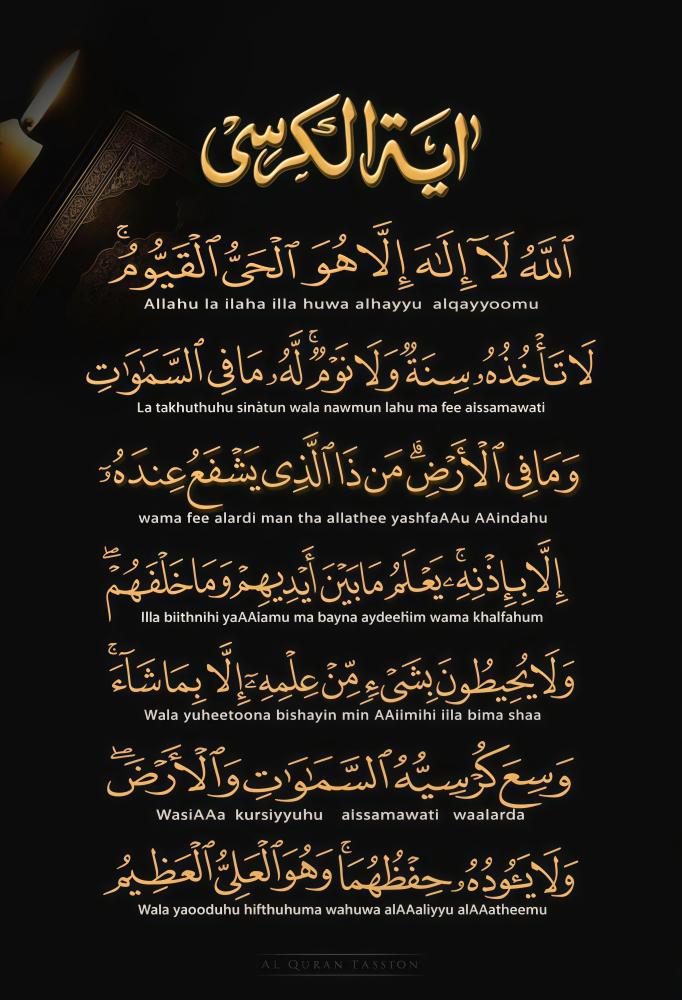 اية الكرسى
ٱللَّهُ لَآ إِلَٰهَ إِلَّا هُوَ ٱلْحَىُّ ٱلْقَيُّومُ ۚ
Allahu la ilaha illa huwa alhayyu alqayyoomu
لَا تَأْخُذُهُۥ سِنَةٌ وَلَا نَوْمٌ ۚ لَّهُۥ مَا فِى ٱلسَّمَٰوَٰتِ
La takhuthuhu sinàtun wala nawmun lahu ma fee aissamawati
وَمَا فِى ٱلْأَرْضِ ۗ مَن ذَا ٱلَّذِى يَشْفَعُ عِندَهُۥٓ
wama fee alardi man tha allathee yashfaAAu AAindahu
إِلَّا بِإِذْنِهِۦ ۚ يَعْلَمُ مَا بَيْنَ أَيْدِيهِمْ وَمَا خَلْفَهُمْ ۖ
Illa biithnihi yaAAlamu ma bayna aydeehim wama khalfahum
وَلَا يُحِيطُونَ بِشَىْءٍ مِّنْ عِلْمِهِۦٓ إِلَّا بِمَا شَآءَ ۚ
Wala yuheetoona bishayin min AAilmihi illa bima shaa
وَسِعَ كُرْسِيُّهُ ٱلسَّمَٰوَٰتِ وَٱلْأَرْضَ ۖ
WasiAAa kursiyyuhu alssamawati waalarda
وَلَا يَـُٔودُهُۥ حِفْظُهُمَا ۚ وَهُوَ ٱلْعَلِىُّ ٱلْعَظِيمُ
Wala yaooduhu hifthuhuma wahuwa alAAaliyyu alAAatheemu
AL QURAN TASSTON